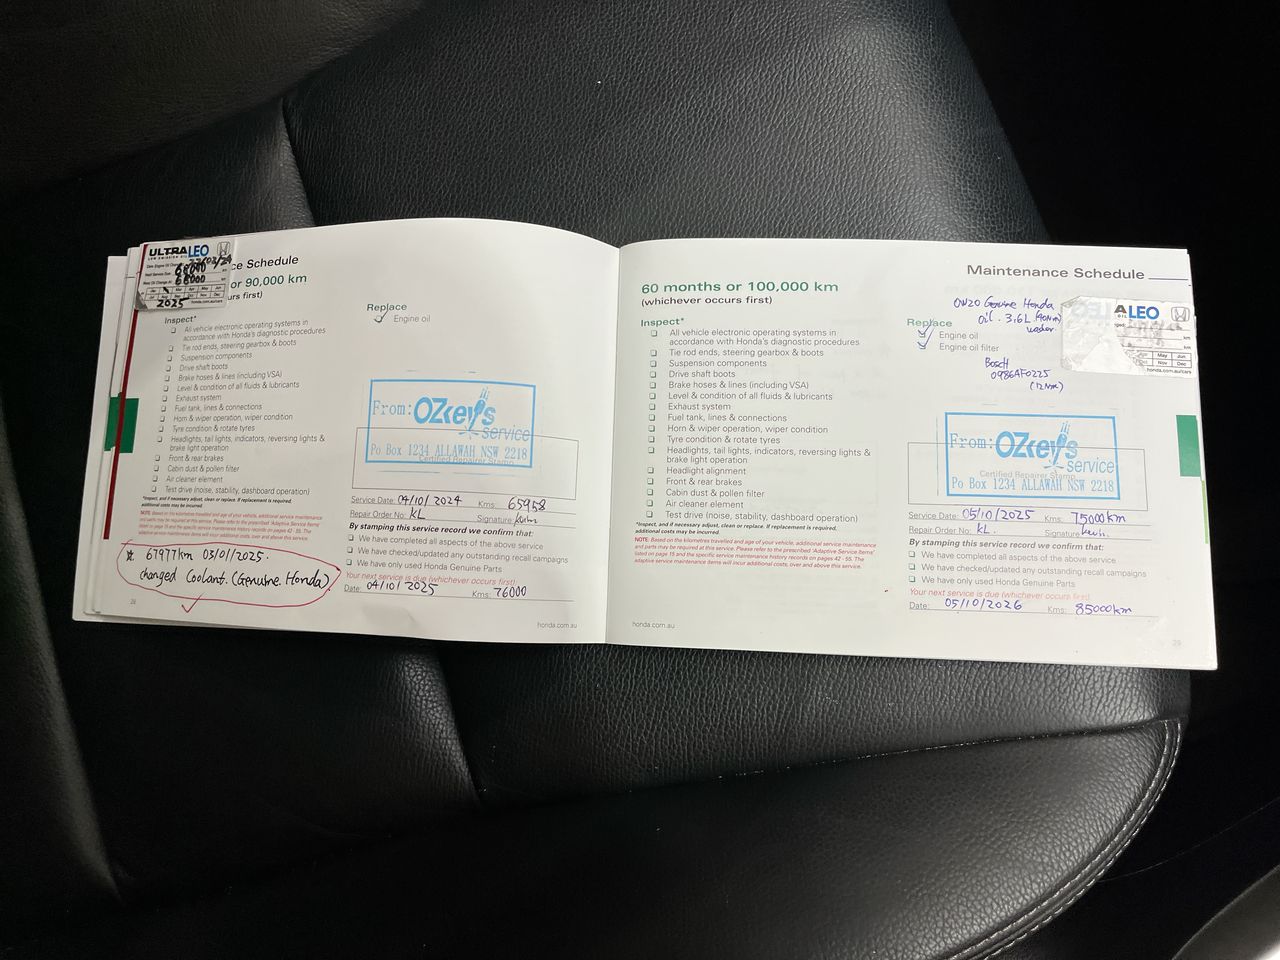 ULTRA LEO
LOW EMISSION OIL
68000
2025
honda.com.au/cars
ce Schedule
or 90,000 km
urs first)
Inspect*
❏ All vehicle electronic operating systems in
accordance with Honda's diagnostic procedures
❏ Tie rod ends, steering gearbox & boots
❏ Suspension components
❏ Drive shaft boots
❏ Brake hoses & lines (including VSA)
❏ Level & condition of all fluids & lubricants
❏ Exhaust system
❏ Fuel tank, lines & connections
❏ Horn & wiper operation, wiper condition
❏ Tyre condition & rotate tyres
❏ Headlights, tail lights, indicators, reversing lights &
brake light operation
❏ Front & rear brakes
❏ Cabin dust & pollen filter
❏ Air cleaner element
❏ Test drive (noise, stability, dashboard operation)
*Inspect, and if necessary adjust, clean or replace. If replacement is required,
additional costs may be incurred.
NOTE: Based on the kilometres travelled and age of your vehicle, additional service maintenance
and parts may be required at this service. Please refer to the prescribed 'Adaptive Service Items'
listed on page 15 and the specific service maintenance history records on pages 42 - 55. The
adaptive service maintenance items will incur additional costs, over and above this service.
* 67977km 03/01/2025.
changed Coolant. (Genuine Honda)
28
Replace
❏ Engine oil
From: OZkey's
service
Po Box 1234 ALLAWAH NSW 2218
Certified Repairer Stamp
Service Date: 04/10/2024 Kms: 65958
Repair Order No: KL Signature
By stamping this service record we confirm that:
❏ We have completed all aspects of the above service
❏ We have checked/updated any outstanding recall campaigns
❏ We have only used Honda Genuine Parts
Your next service is due (whichever occurs first)
Date: 04/10/2025 Kms: 76000
honda.com.au
Maintenance Schedule
60 months or 100,000 km
(whichever occurs first)
Inspect*
❏ All vehicle electronic operating systems in
accordance with Honda's diagnostic procedures
❏ Tie rod ends, steering gearbox & boots
❏ Suspension components
❏ Drive shaft boots
❏ Brake hoses & lines (including VSA)
❏ Level & condition of all fluids & lubricants
❏ Exhaust system
❏ Fuel tank, lines & connections
❏ Horn & wiper operation, wiper condition
❏ Tyre condition & rotate tyres
❏ Headlights, tail lights, indicators, reversing lights &
brake light operation
❏ Headlight alignment
❏ Front & rear brakes
❏ Cabin dust & pollen filter
❏ Air cleaner element
❏ Test drive (noise, stability, dashboard operation)
*Inspect, and if necessary adjust, clean or replace. If replacement is required,
additional costs may be incurred.
NOTE: Based on the kilometres travelled and age of your vehicle, additional service maintenance
and parts may be required at this service. Please refer to the prescribed 'Adaptive Service Items'
listed on page 15 and the specific service maintenance history records on pages 42 - 55. The
adaptive service maintenance items will incur additional costs, over and above this service.
honda.com.au
0W20 Genuine Honda
Oil. 3.6L (40Nm)
washer
Replace
❏ Engine oil
❏ Engine oil filter
Bosch
0986AF0225
(12Nm)
A LEO
km
km
May Jun
Oct Nov Dec
honda.com.au/cars
From: OZkey's
service
Certified Repairer Stamp
Po Box 1234 ALLAWAH NSW 2218
Service Date: 05/10/2025 Kms: 75000km
Repair Order No: KL. Signature
By stamping this service record we confirm that:
❏ We have completed all aspects of the above service
❏ We have checked/updated any outstanding recall campaigns
❏ We have only used Honda Genuine Parts
Your next service is due (whichever occurs first)
Date: 05/10/2026 Kms: 85000km
29